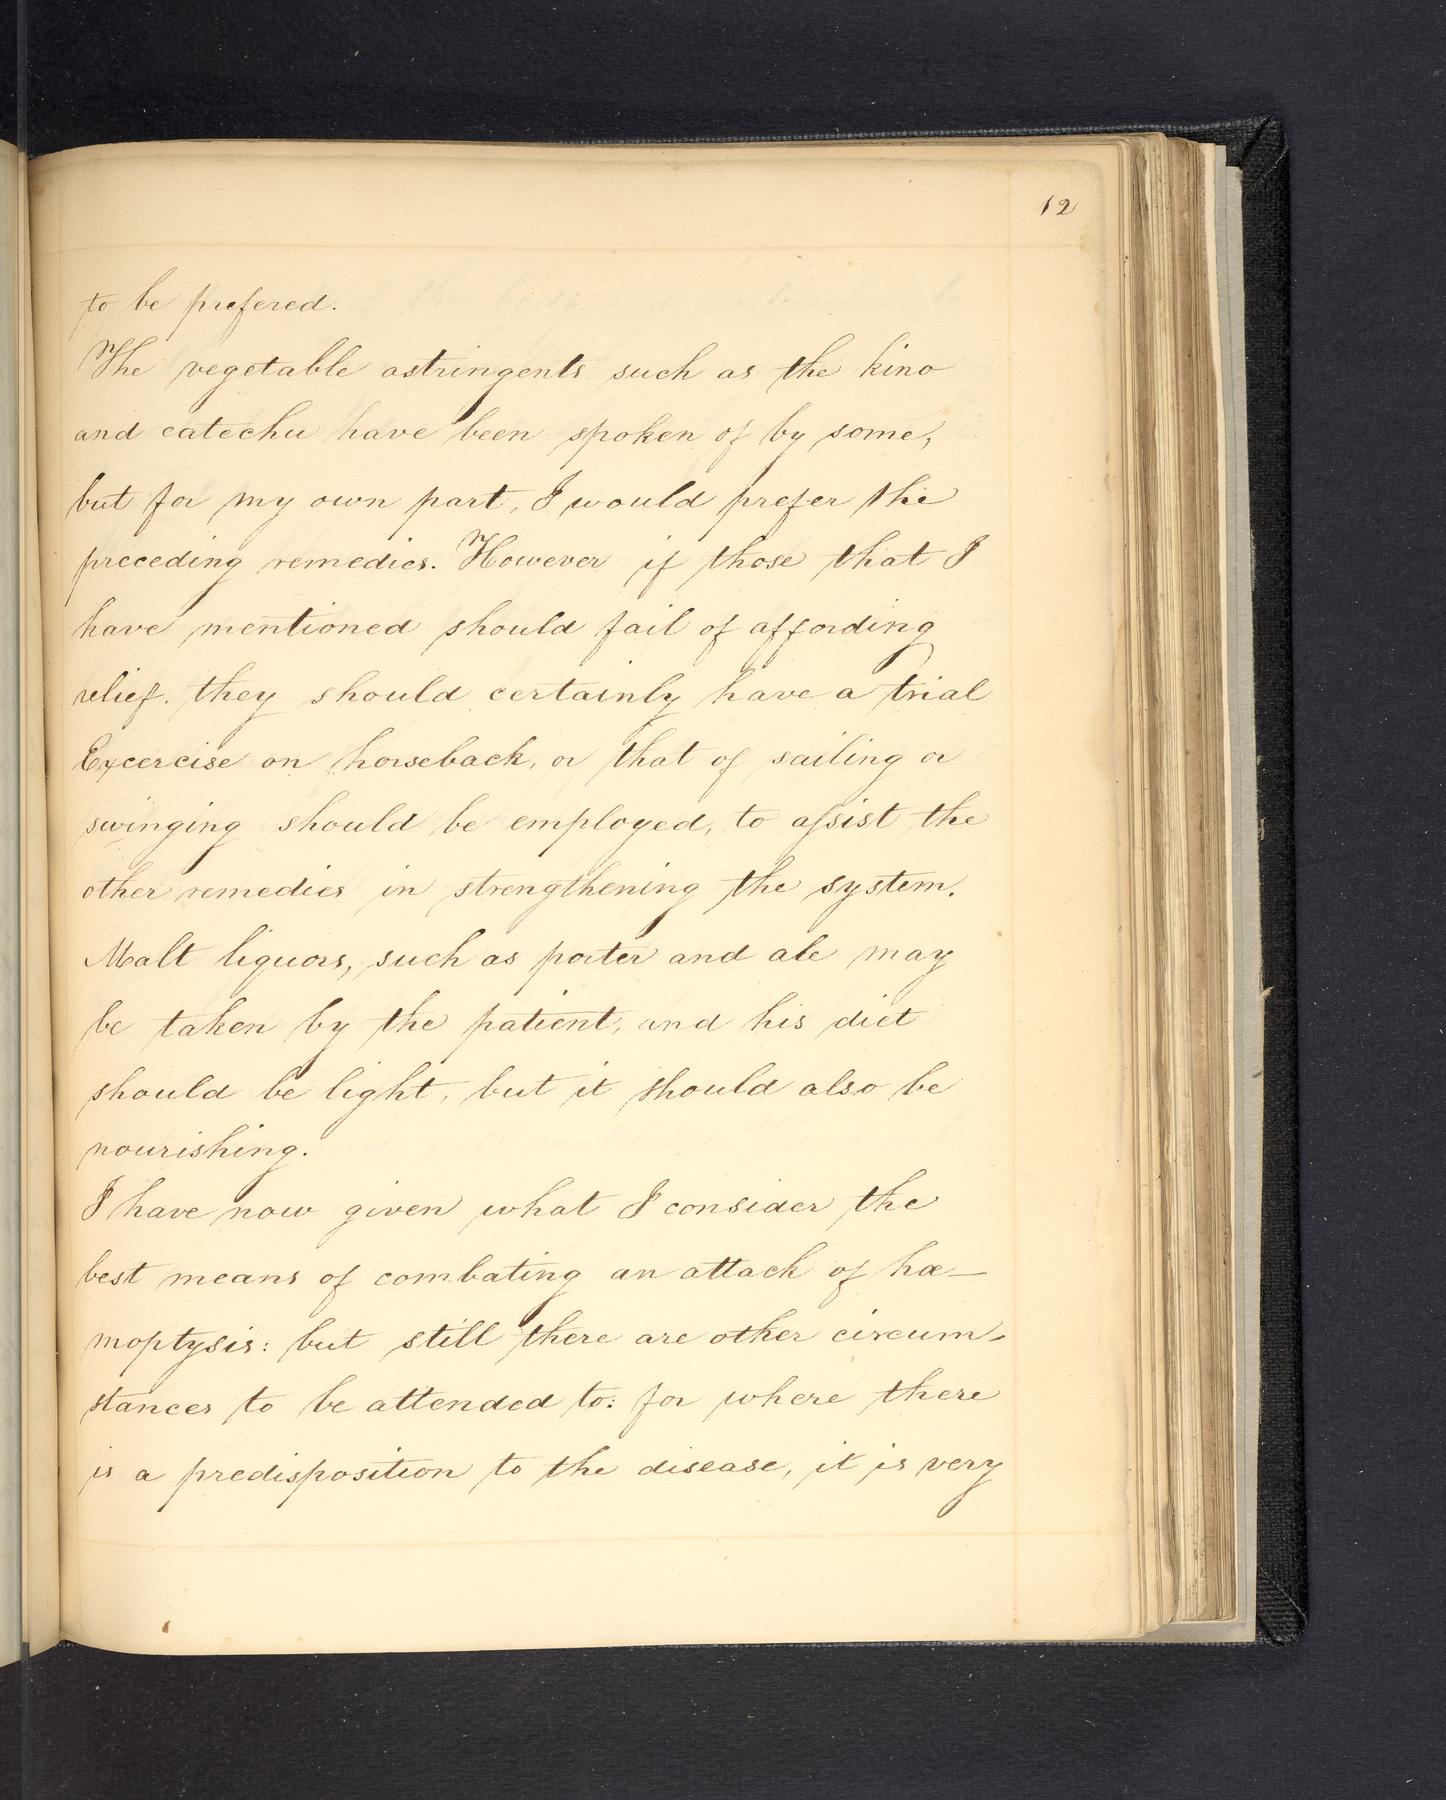 12
to be prefered.
The vegetable astringents such as the kino
and catechu have been spoken of by some,
but for my own part, I would prefer the
preceding remedies. However if those that I
have mentioned should fail of affording
relief. they should certainly have a trial
Excercise on horseback, or that of sailing or
swinging should be employed, to assist the
other remedies in strengthening the system.
Malt liquors, such as porter and ale may
be taken by the patient, and his diet
should be light, but it should also be
nourishing.
I have now given what I consider the
best means of combating an attack of hæ-
moptysis: but still there are other circum-
stances to be attended to: for where there
is a predisposition to the disease, it is very